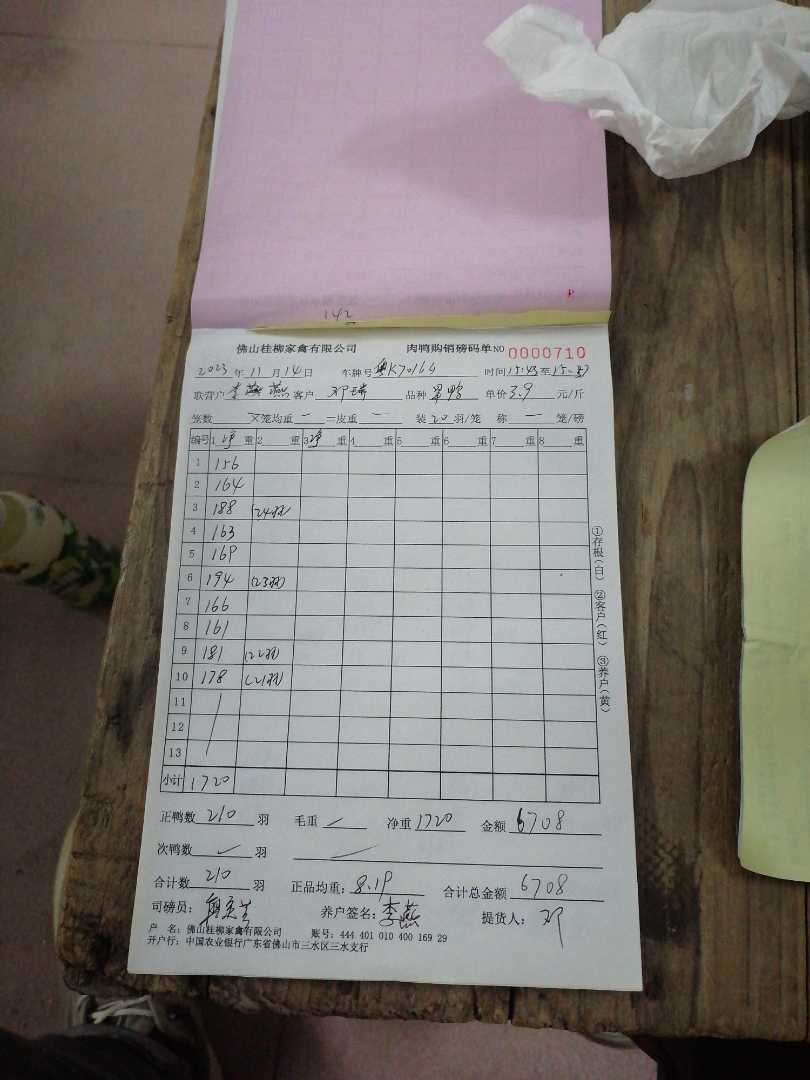 142
佛山桂柳家禽有限公司 肉鸭购销磅码单 NO 0000710
2023年11月14日 车牌号 粤K70164 时间15:43至15:57
联营户 李燕燕 客户 邓 品种 果鸭 单价3.9元/斤
笼数 ×笼均重 — =皮重 — 装20羽/笼 称 — 笼/磅
编号 1净重 2 重 3净重 4 重 5 重 6 重 7 重 8 重
1 156
2 164
3 188 (24羽)
4 163
5 169
6 194 (23羽)
7 166
8 161
9 181 (22羽)
10 178 (21羽)
11
12
13
小计 1720
①存根(白) ②客户(红) ③养户(黄)
正鸭数 210 羽 毛重 净重 1720 金额 6708
次鸭数 羽
合计数 210 羽 正品均重: 8.19 合计总金额 6708
司磅员: 养户签名: 李燕 提货人: 邓
户 名: 佛山桂柳家禽有限公司 账号: 444 401 010 400 169 29
开户行: 中国农业银行广东省佛山市三水区三水支行